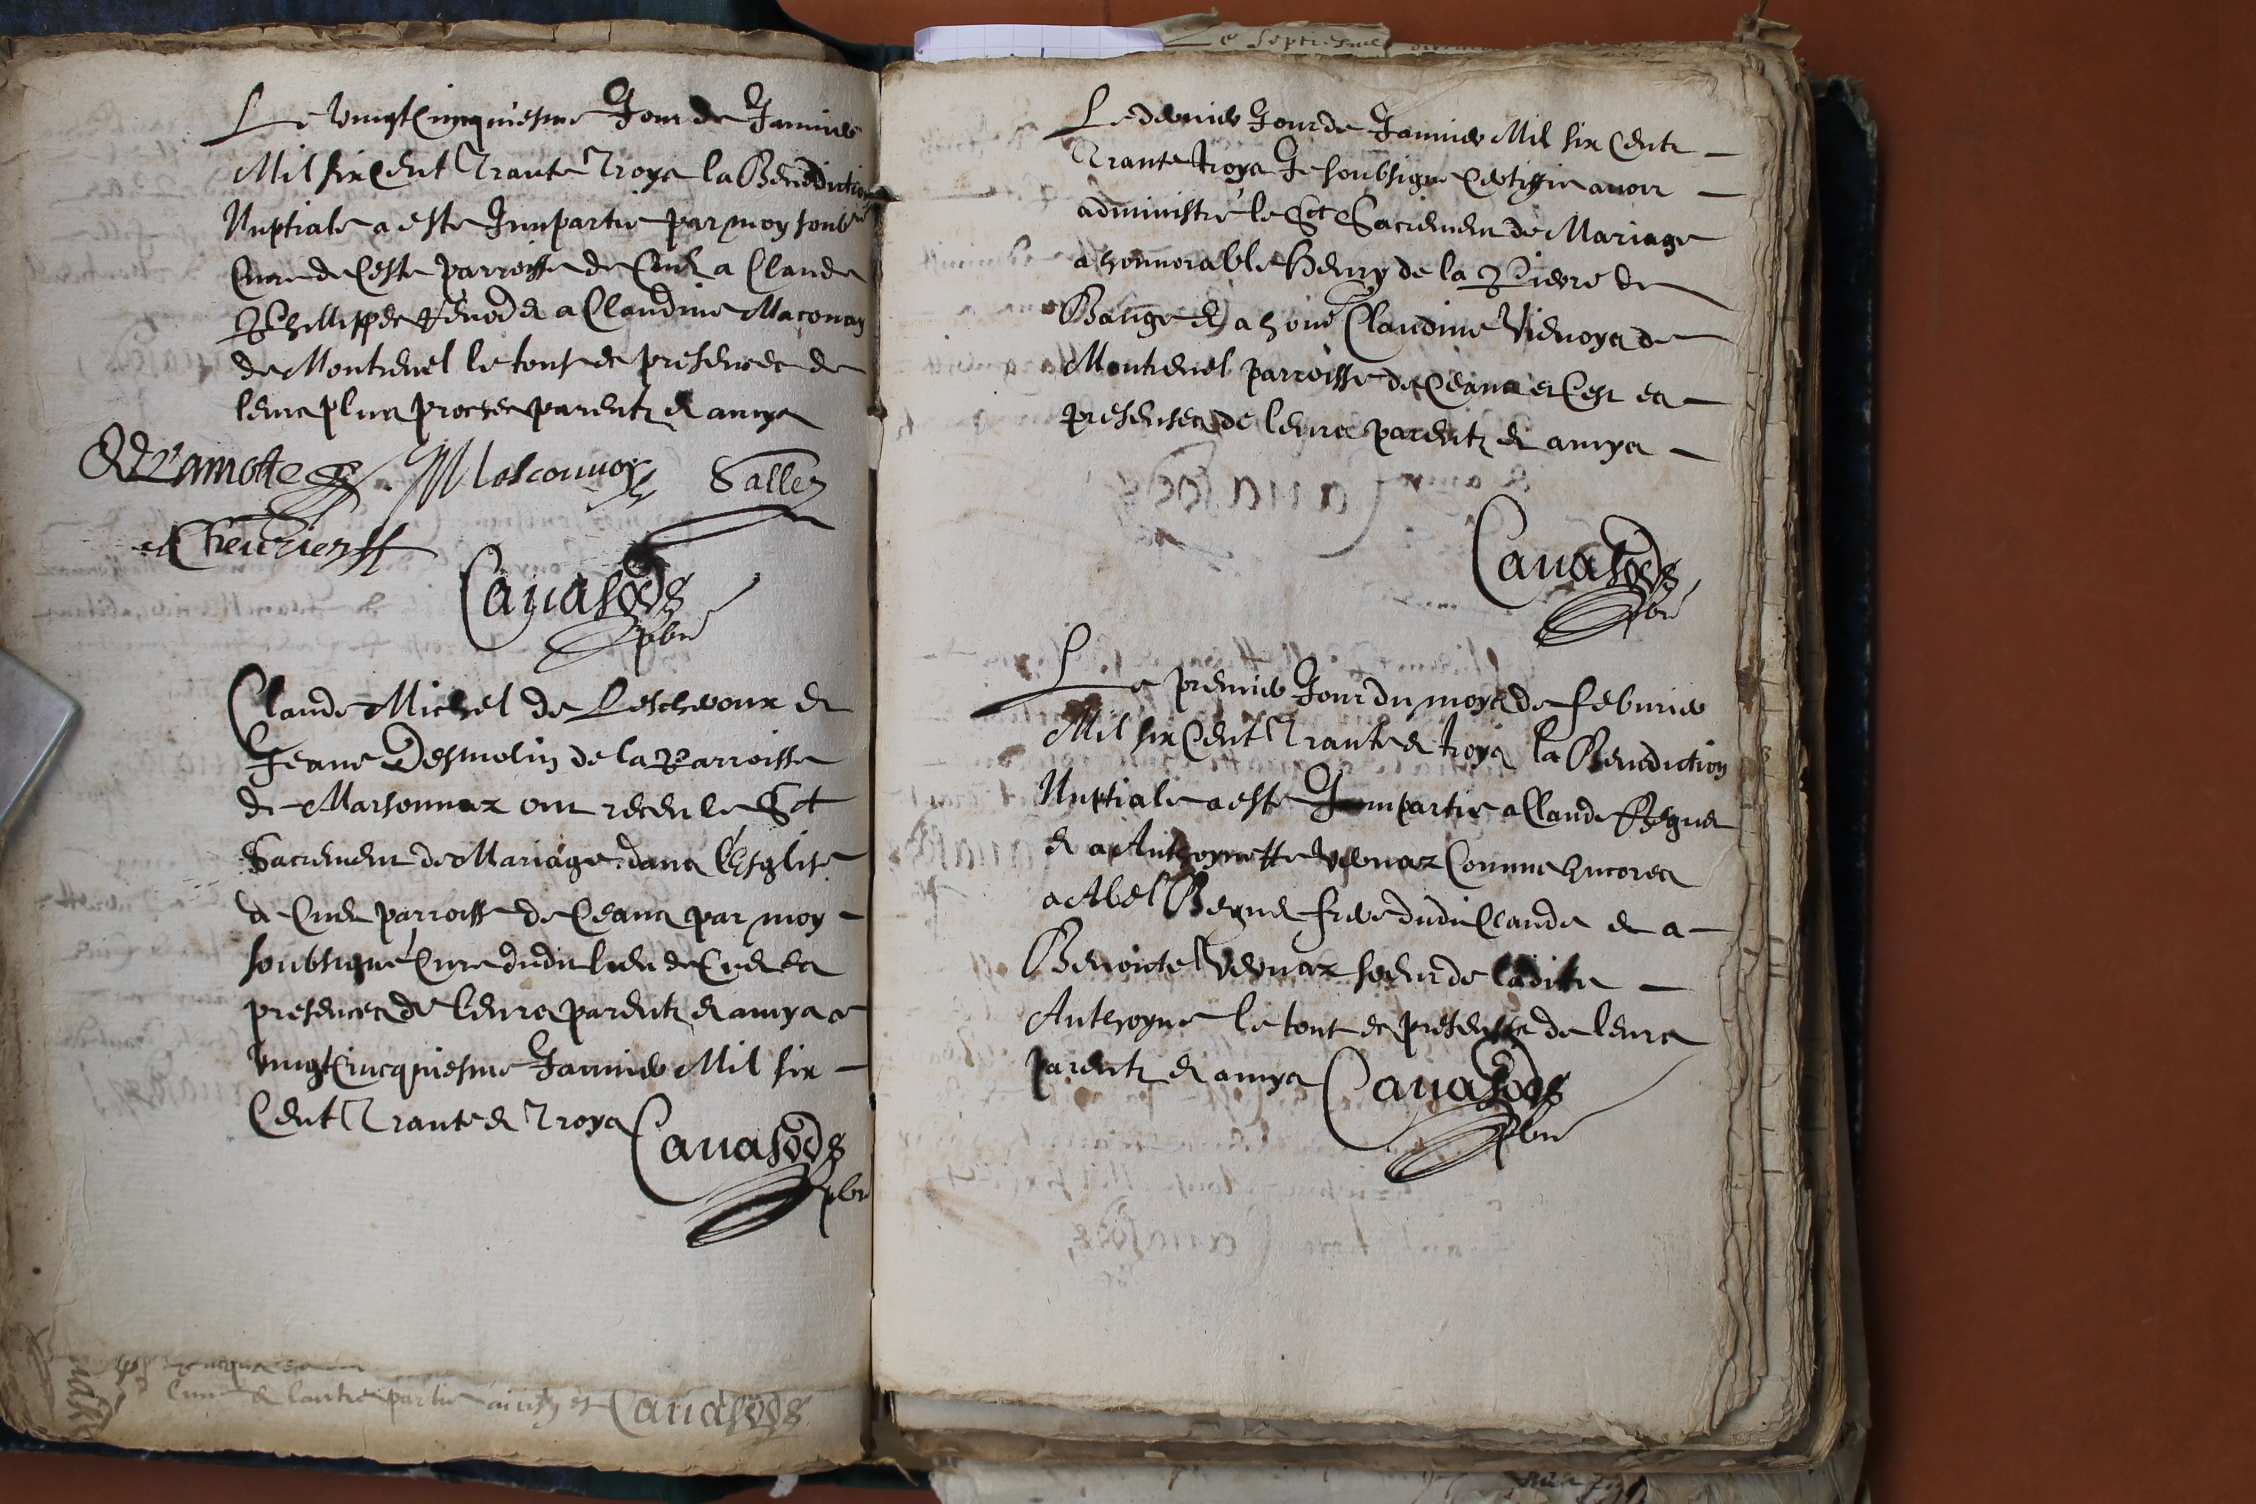 Le vingt Cinquiesme Jour de Janvier
Mil six Cent Trante Troys la Benediction
Nuptiale a este Jmpartie par moy soubne
Cure de Ceste parroisse de Cuet a Claude
Phillippe et a Claudine Maconay
de Montrevel le tout es presences de
leurs plus proches parentz et amys
Lamotte Masconnoy Sallez
Chevrier
Cavasods
pbre
Claude Michel de Lescheroux et
Jeane Desmolin de la Parroisse
de Marsonnaz ont receu le Sct
Sacrement de Mariage dans l'Esglise
de Cuet parroisse de Ceans par moy
soubsigné Cure dudit lieu de Cuet es
presences de leurs parentz et amys ce
vingt Cincquiesme Janvier Mil six
Cent Trante et Troys Cavasods
pbre
Lune et lautre partie ainsy est Cavasods
Le Septiesme
Le dernier Jour de Janvier Mil six Centz
Trante troys Je soubsigne Certiffie avoir
administré le Sct Sacrement de Mariage
a honnorable Henry de la Pierre de
Bauge et a hone Claudine Vienoys de
Montrevel parroisse de Ceans et Cest es
presenses de leurs parentz et amys
Cavasods
pbre
Le premier Jour du moys de febvrier
Mil six Cent Trante et troys la Benediction
Nuptiale a este Jmpartie a Claude Beguet
et a Anthoynette Vernaz Comme Encores
a Abel Beguet frere dudit Claude et a
Benoicte Vernaz soeur de ladite
Anthoyne le tout es presense de leurs
parentz et amys Cavasods
pbre